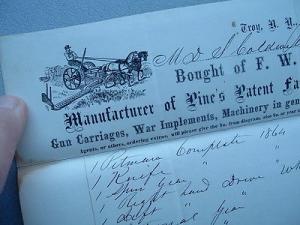 Troy, N. Y.,
M
Bought of F. W.
Manufacturer of Pine's Patent Fa
Gun Carriages, War Implements, Machinery in gen
Agents, or others, ordering extras, will please give the No. from diagram, also No. or
1 Pitman Complete 1864
1 Knife "
1 Spur Gear "
1 Right hand Drive Wh
1 Left " "
Gear